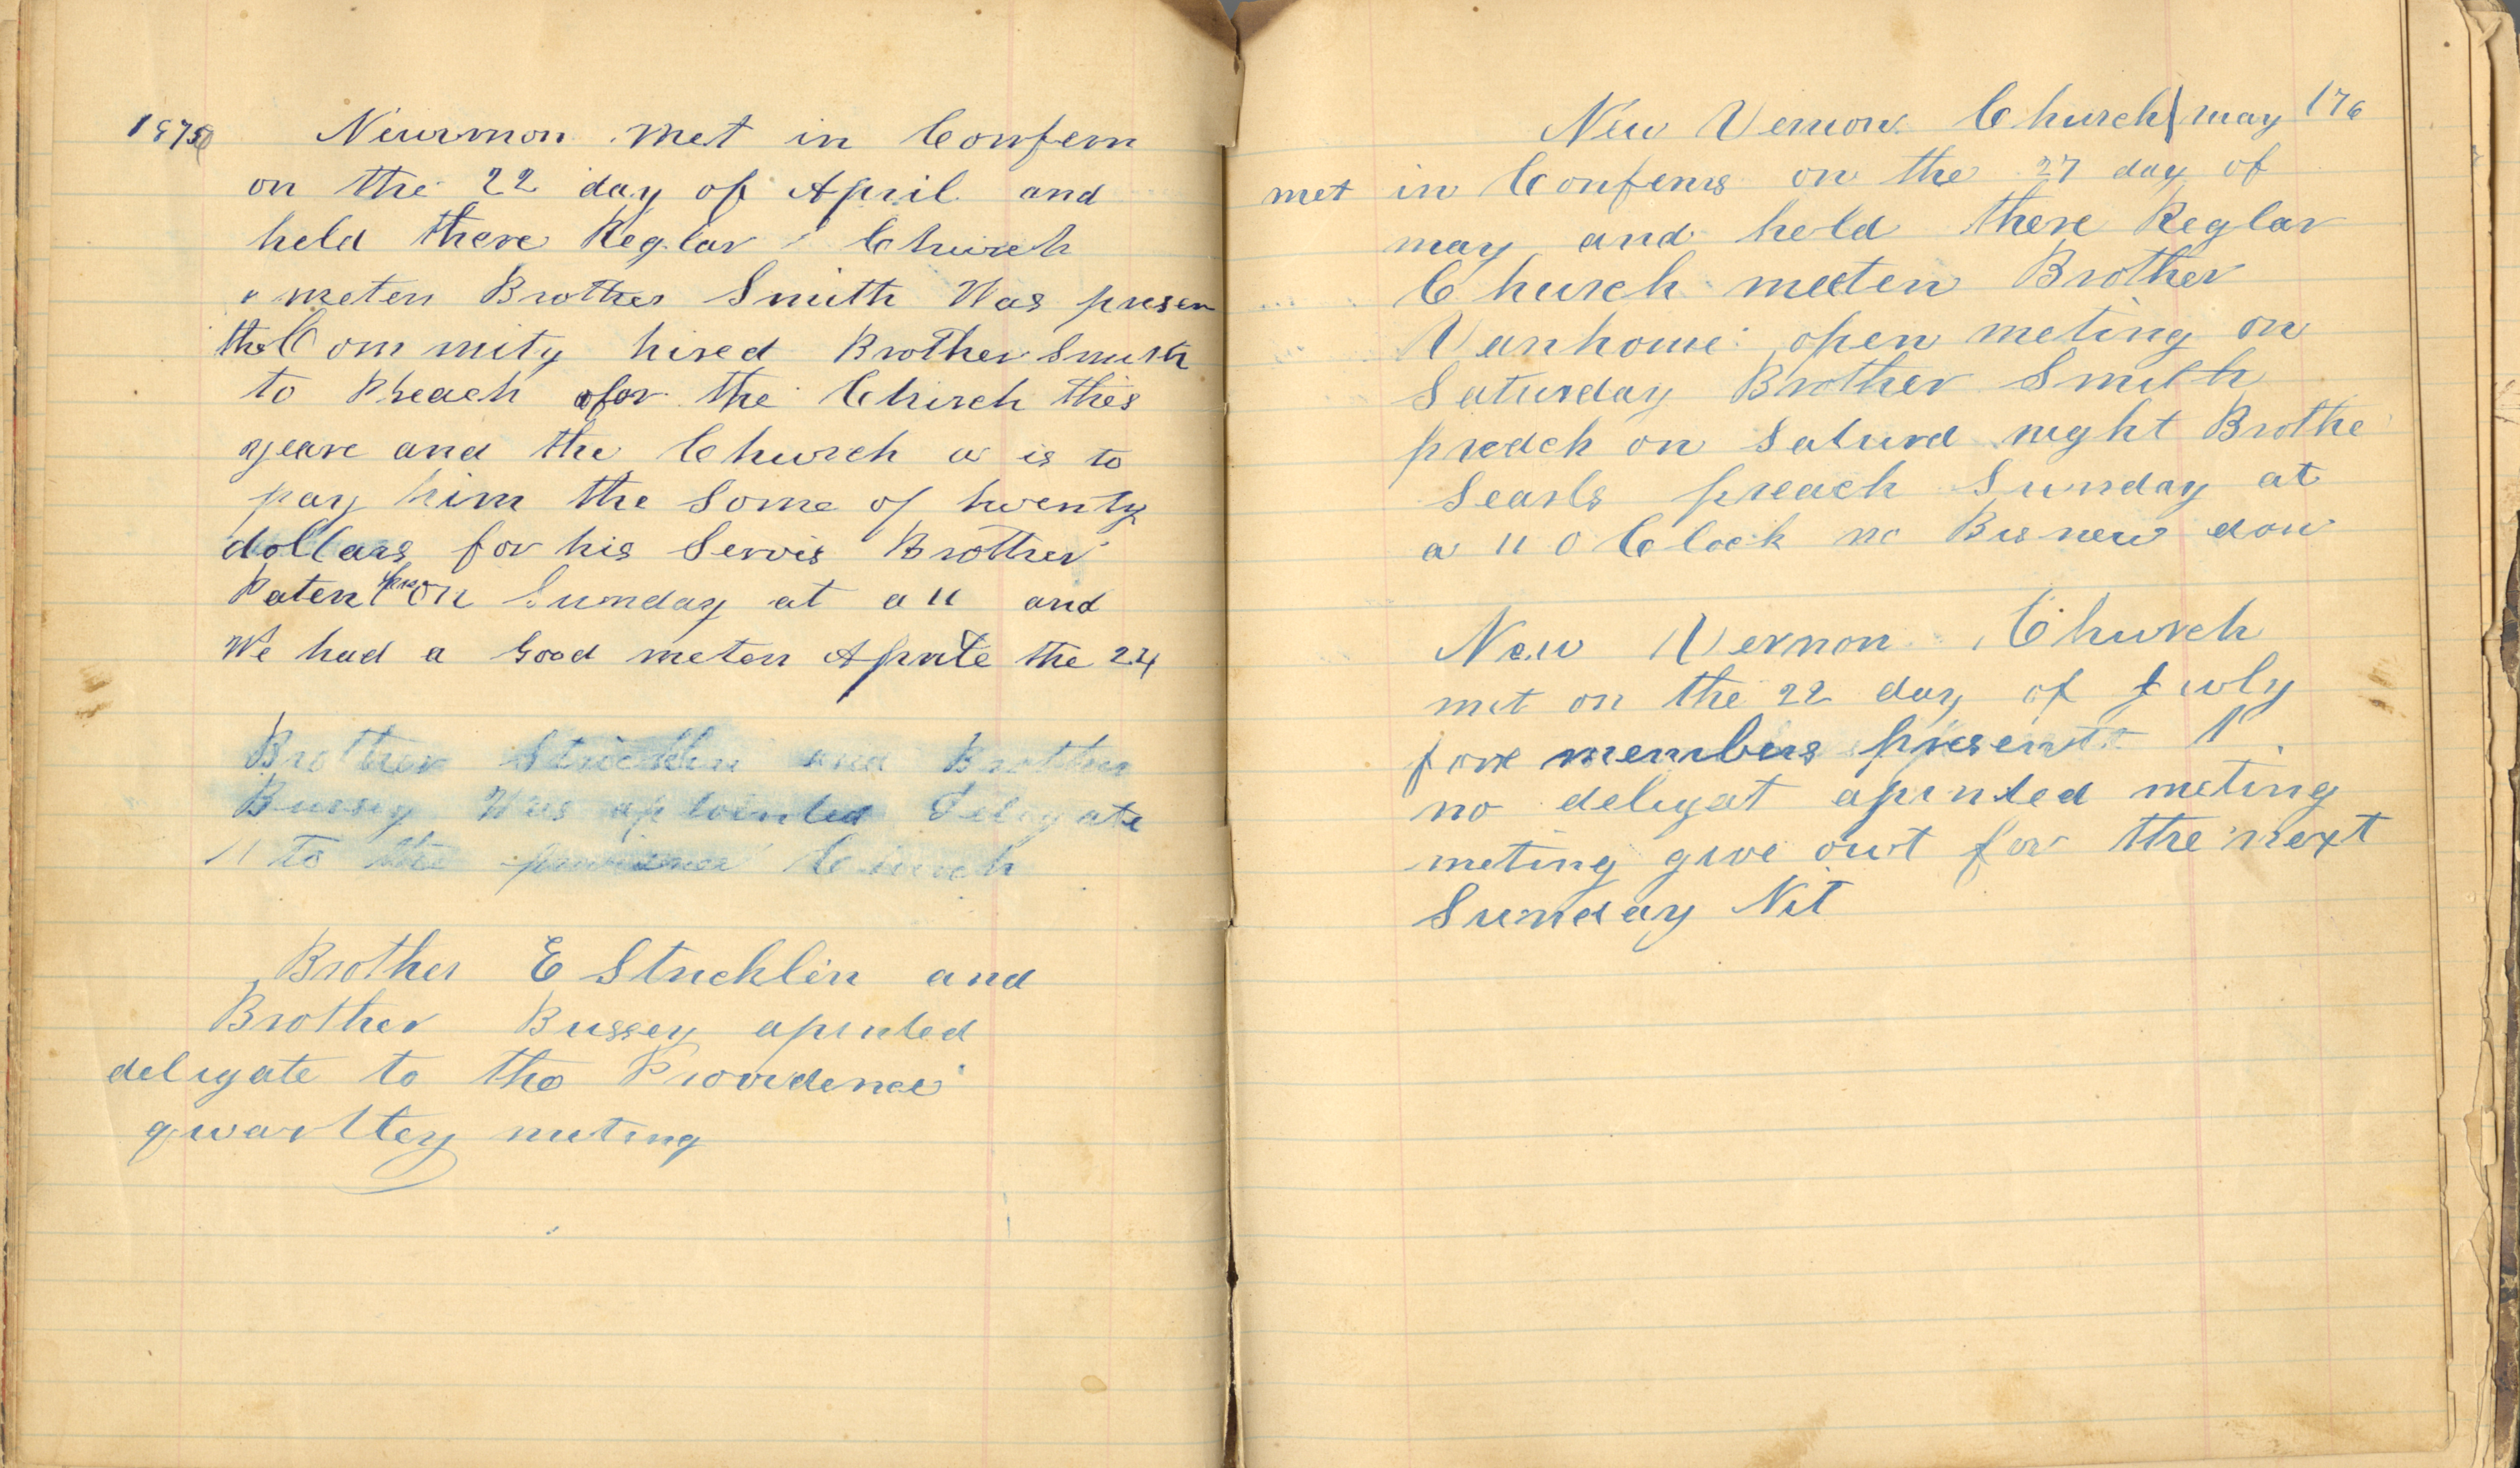 1875 Newrnon met in Confern
on the 22 day of April and
held there Reglar Church
meten Brother Smith Was presen
the Commity hired Brother Smith
to Preach for the Chirch this
yeare and the Church a is to
pay him the Some of twenty
dollars for his Servis Brother
Paten on Sunday at a 11 and
We had a Good meten Aprile the 24
Brother Stricklin and Brother
Bussey Was apointed Delegate
to the Church
Brother E Stricklin and
Brother Bussey apinted
deligate to the Providence
qwartley meting
New Vernon Church may 176
met in Conferns on the 27 day of
may and held there Reglar
Church meeten Brother
Vanhoue open meting on
Saturday Brother Smith
preach on Saturd night Brothe
Searls preach Sunday at
a 11 O Clock no Bisnew don
New Vernon Church
met on the 22 day of July
fore members present
no deligat apinted meting
meting give owt for the next
Sunday Nit